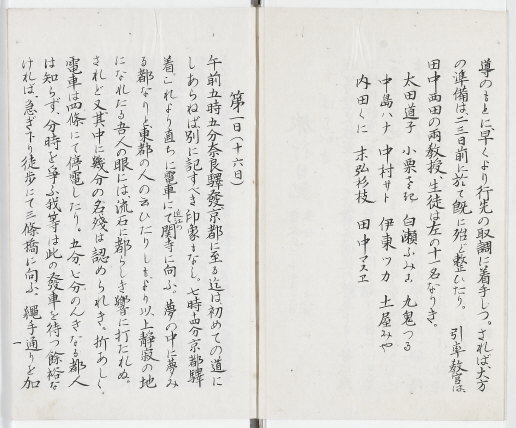 導のもとに早くより行先の取調に着手しつ。されば大方
の準備は二三日前に於て既に殆ど整ひたり。引率教官は
田中西田の兩教授、生徒は左の十一名なりき。
太田道子 小栗 白瀬ふみ 九鬼つる
中島ハナ 中村サト 伊東ツカ 土屋みや
内田くに 末弘杉枝 田中マスヱ
第一日(十六日)
午前五時五分奈良驛發京都に至る迄は初めての道に
しあらねば別に記すべき印象もなし。七時十四分京都驛
着これより直ちに電車にて近江の関寺に向ふ。夢の中に夢み
る都なりと東都の人の云ひたりしもより以上静寂の地
になれたる吾人の眼には流石に都らしき響に打たれぬ。
されど又其中に幾分の名殘は認められき。折あしく
電車は四條にて停電したり。五分七分のんきなる都人
は知らず、分時を爭ふ我等は此の發車を待つ餘裕な
ければ、急ぎ下り徒歩にて三條橋に向ふ、繩手通りを加
一